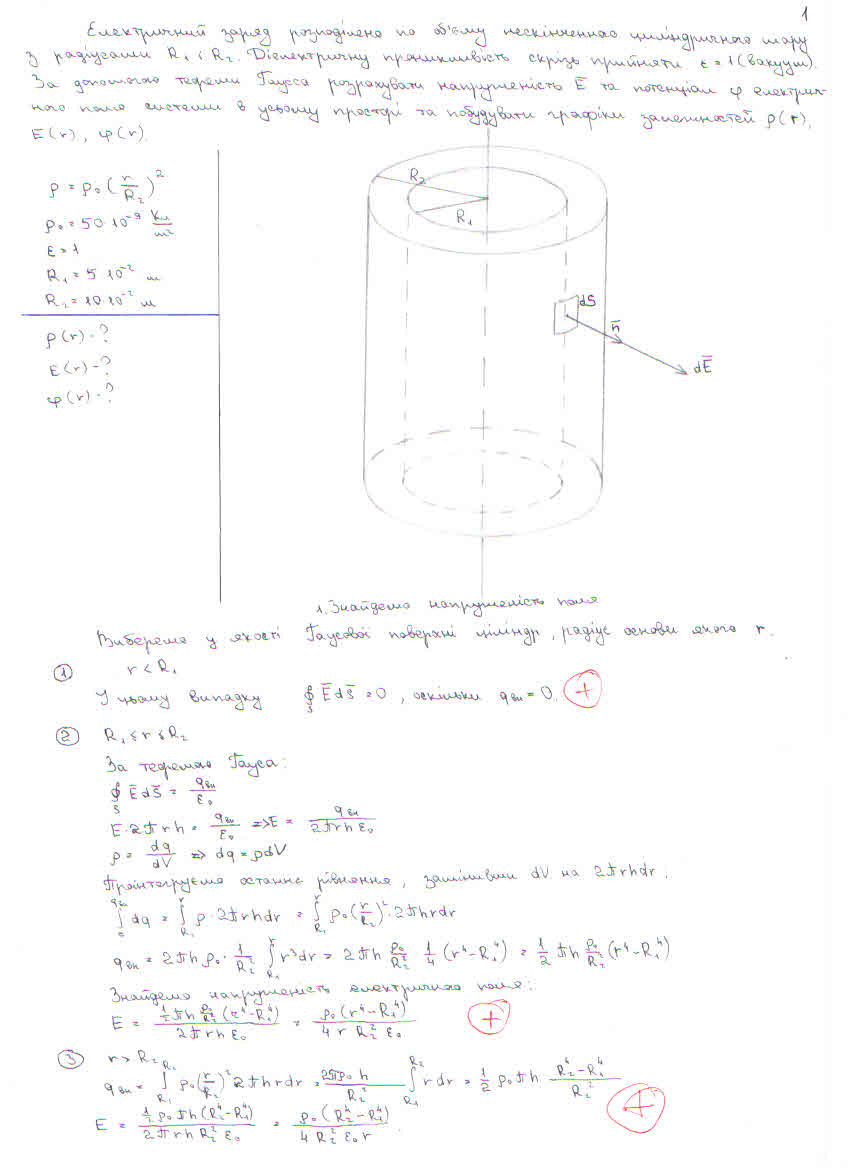 1
Електричний заряд розподілено по об'єму нескінченнао циліндричного шару
з радіусами R₁ і R₂. Діелектричну проникливість скрізь прийняти ε = 1 (вакуум).
За допомогою теореми Гаусса розрахувати напруженість E̅ та потенціал φ електрич-
ного поля системи в усьому просторі та побудувати графіки залежностей ρ(r),
E(r), φ(r).
ρ = ρ₀ (r/R₂)²
ρ₀ = 50·10⁻⁹ Кл/м²
ε = 1
R₁ = 5·10⁻² м
R₂ = 10·10⁻² м
ρ(r) - ?
E(r) - ?
φ(r) - ?
R₂
R₁
dS
n̅
dE̅
1. Знайдемо напруженість поля
Виберемо у якості Гаусової поверхні циліндр, радіус основи якого r.
① r < R₁
У цьому випадку ∮_S E̅dS̅ = 0, оскільки qвн = 0. +
② R₁ ≤ r ≤ R₂
За теоремою Гауса:
∮_S E̅dS̅ = qвн/ε₀
E·2πrh = qвн/ε₀ => E = qвн/(2πrhε₀)
ρ = dq/dV => dq = ρdV
Проінтегруємо останнє рівняння, замінивши dV на 2πrhdr.
∫₀^qвн dq = ∫_R₁^r ρ·2πrhdr = ∫_R₁^r ρ₀(r/R₂)²·2πhrdr
qвн = 2πhρ₀·1/R₂² ∫_R₁^r r³dr = 2πh ρ₀/R₂² 1/4 (r⁴-R₁⁴) = 1/2 πh ρ₀/R₂² (r⁴-R₁⁴)
Знайдемо напруженість електричного поля:
E = (1/2 πh ρ₀/R₂² (r⁴-R₁⁴))/(2πrhε₀) = ρ₀(r⁴-R₁⁴)/(4rR₂²ε₀) +
③ r > R₂
qвн = ∫_R₁^R₂ ρ₀(r/R₂)² 2πhrdr = 2πρ₀h/R₂² ∫_R₁^R₂ rdr = 1/2 ρ₀πh (R₂⁴-R₁⁴)/R₂² +
E = (1/2 ρ₀πh(R₂⁴-R₁⁴))/(2πrhR₂²ε₀) = ρ₀(R₂⁴-R₁⁴)/(4R₂²ε₀r).